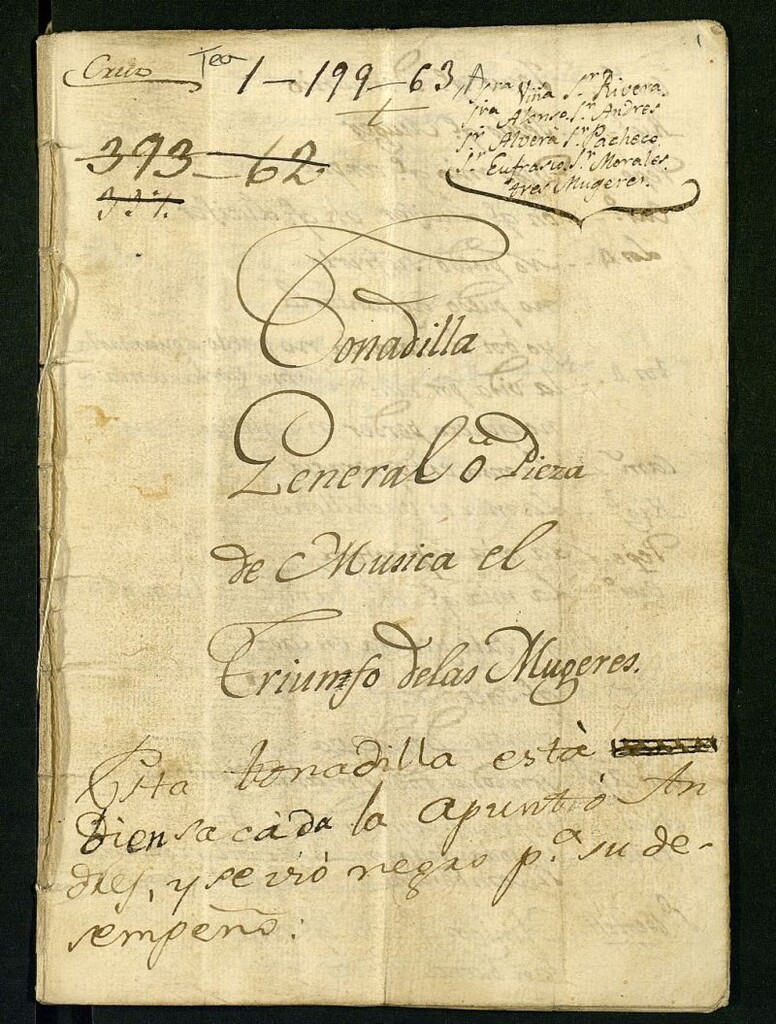 Cruz
Tea 1-199-63
1
393-62
Sra Viña Sr. Rivera
Sra Alonso. Sr. Andres
Sr. Alvera Sr. Pacheco
Sr. Eufrasio. Sr. Morales.
tres Mugeres.
Tonadilla
General ò Pieza
de Musica el
Triumfo delas Mugeres.
Esta tonadilla està
bien sacàda la apuntò An
dres, y se viò negro p.ª su de-
sempeño: